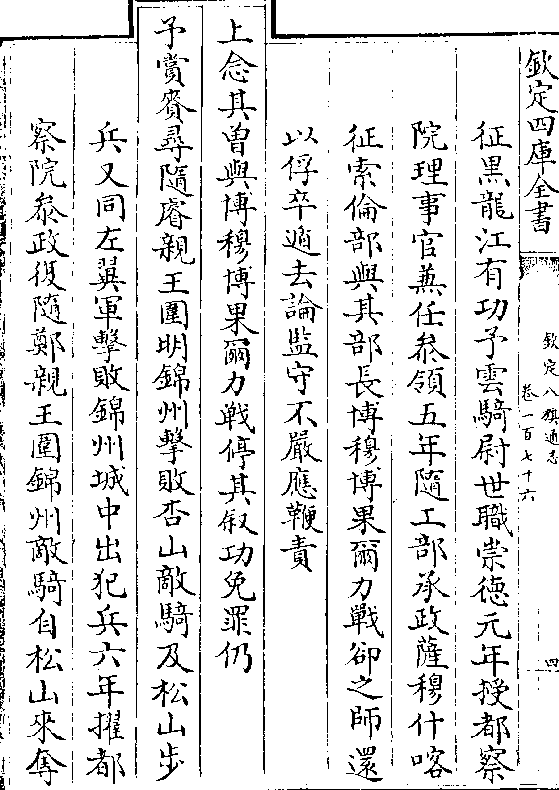 欽定四庫全書
欽定八旗通志
卷一百七十六
四
征黒龍江有功予雲騎尉世職崇徳元年授都察
院理事官兼任叅領五年隨工部承政薩穆什喀
征索倫部與其部長博穆博果爾力戰卻之師還
以俘卒遁去論監守不嚴應鞭責
上念其曽與博穆博果爾力戰停其叙功免罪仍
予賞賚尋隨睿親王圍明錦州擊敗杏山敵騎及松山步
兵又同左翼軍擊敗錦州城中出犯兵六年擢都
察院叅政復隨鄭親王圍錦州敵騎自松山來奪